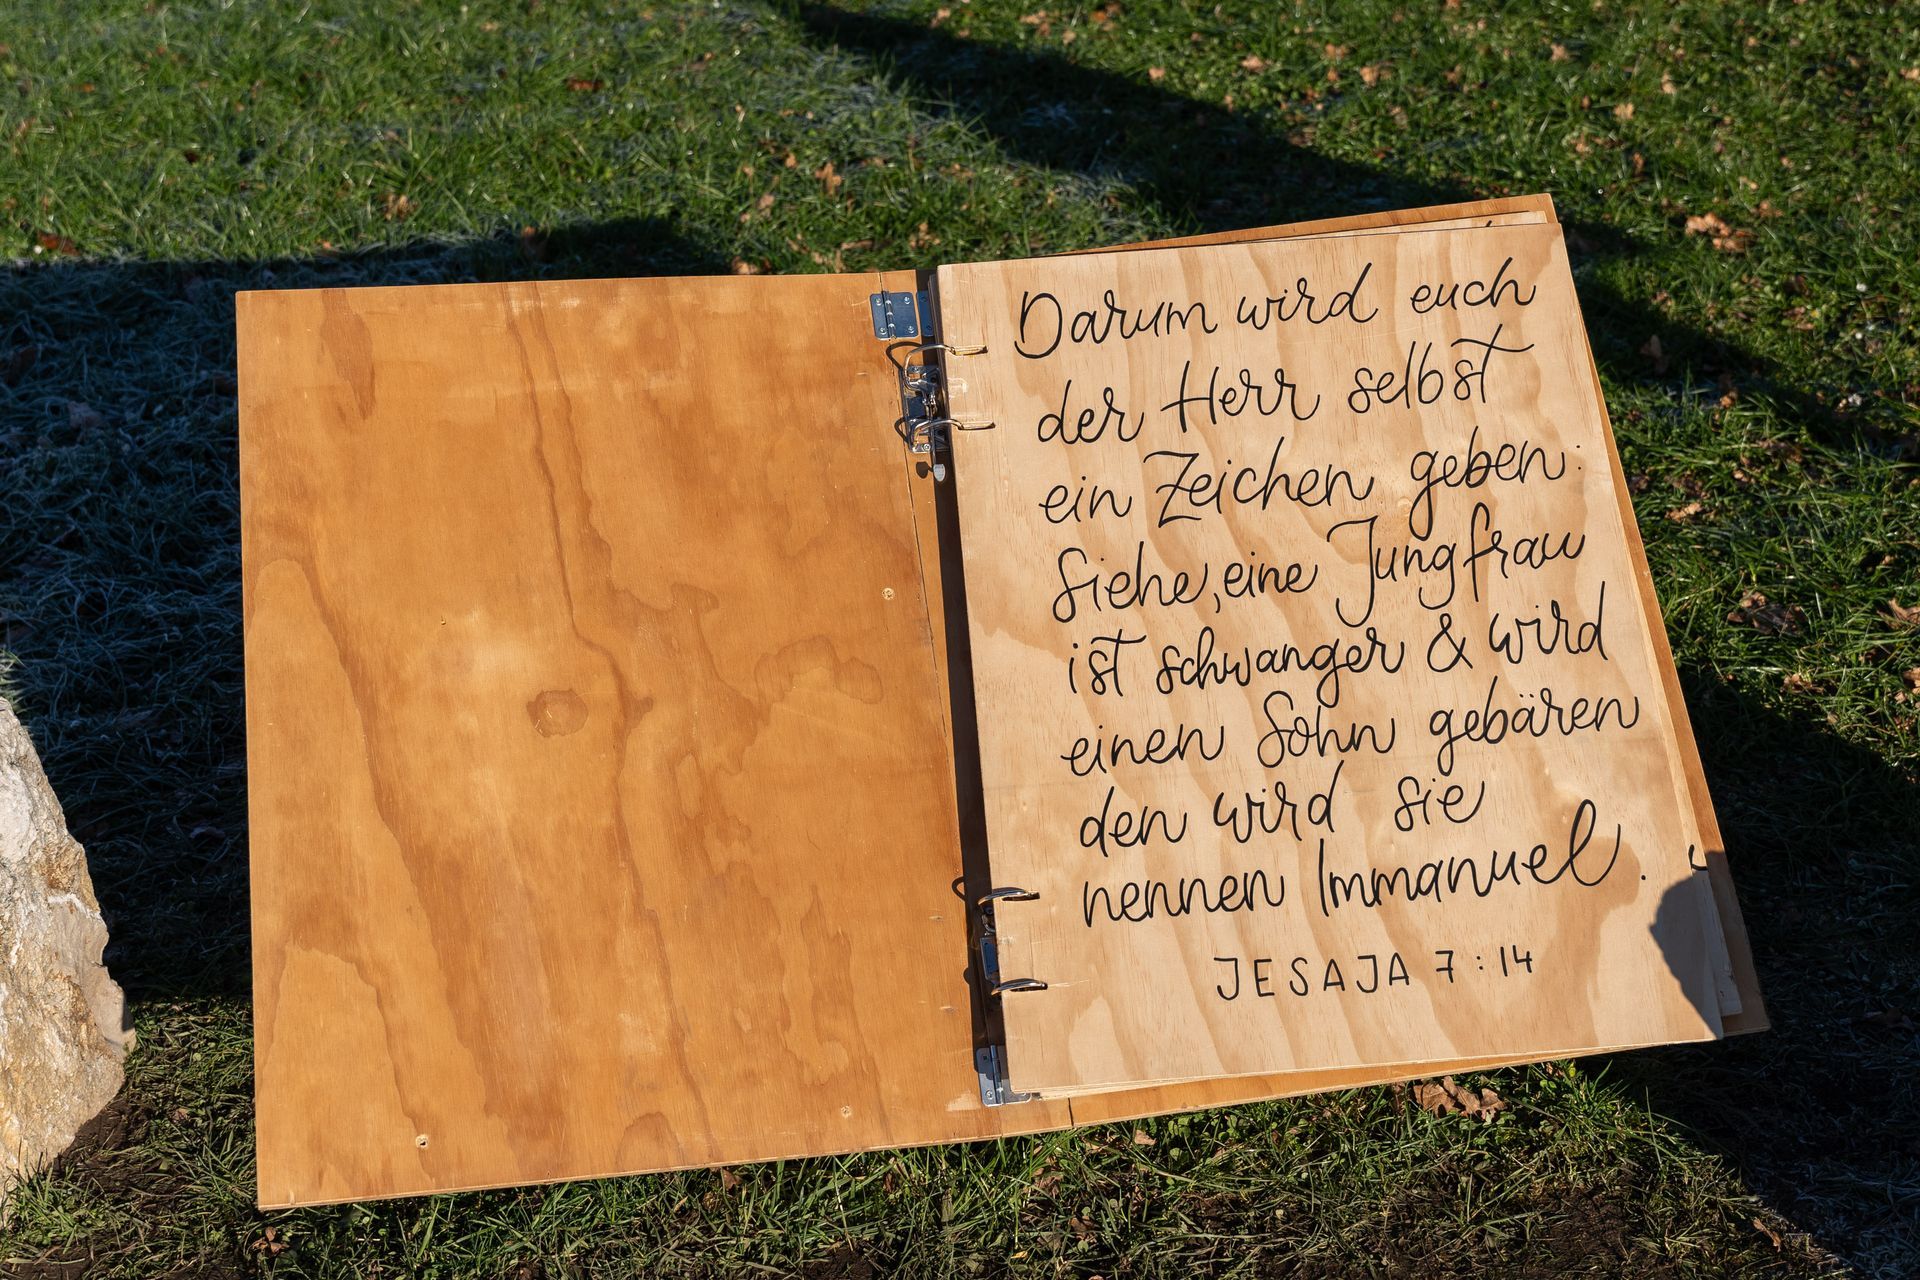 Darum wird euch
der Herr selbst
ein Zeichen geben:
Siehe, eine Jungfrau
ist schwanger & wird
einen Sohn gebären
den wird sie
nennen Immanuel.
JESAJA 7:14